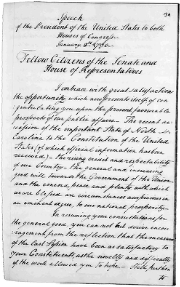 Speech
of the President of the United States to both
Houses of Congress
January 8th 1790.
Fellow Citizens of the Senate and
House of Representatives
I embrace with great satisfaction
the opportunity which now presents itself of con-
gratulating you on the present favourable
prospects of our public affairs. The recent ac-
cession of the important State of North
Carolina to the Constitution of the United
States (of which official information has been
received) The rising credit and respectability
of our Country. The general and increasing
good will towards the Government of the Union
and the concord, peace and plenty with which
we are blessed are circumstances auspicious in
an eminent degree to our national prosperity.
In resuming your consultations for
the general good you can not but derive encou-
ragement from the reflection that the measures
of the last Session have been as satisfactory to
your Constituents as the novelty and difficulty
of the work allowed you to hope.